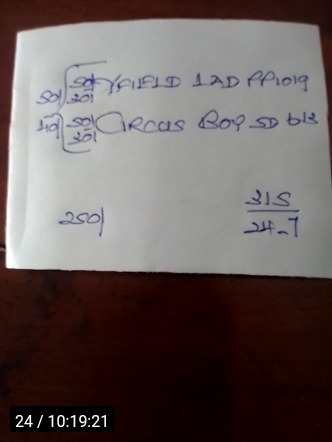 50/ 50/ 30/ YFIELD LAD PP1019
40/ 50/ 30/ CIRCUS BOY SD 613
250/
315
24-7
24 / 10:19:21